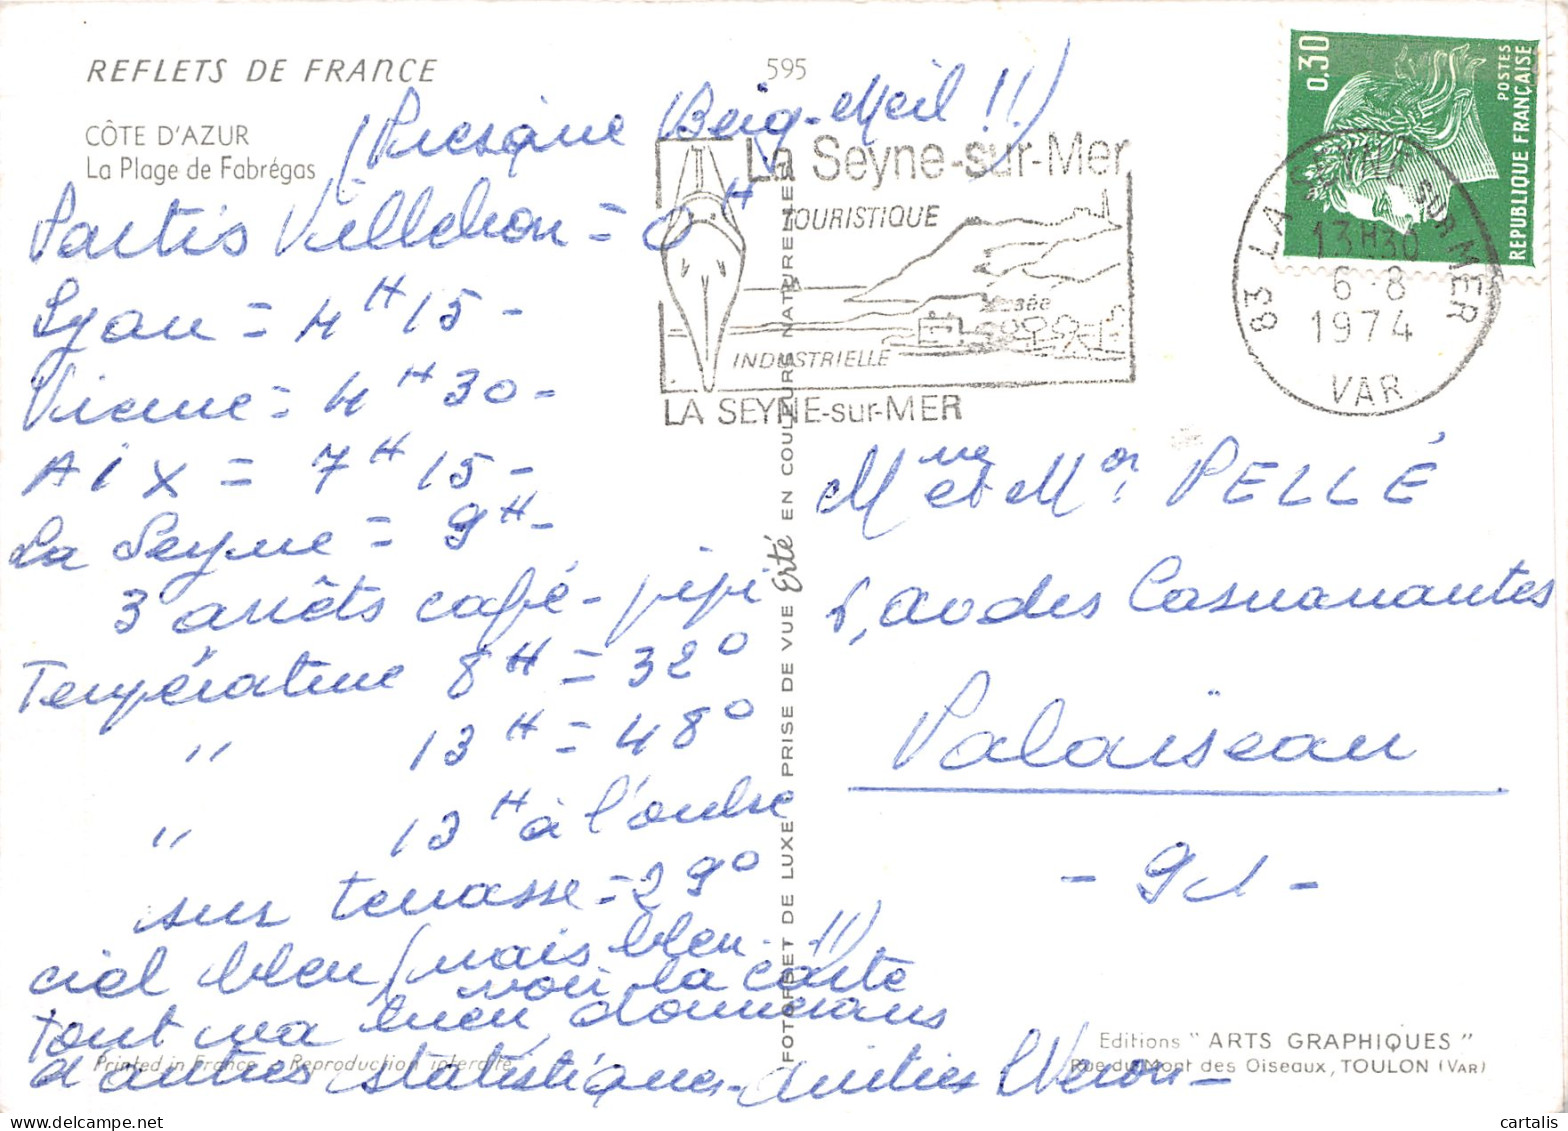 REFLETS DE FRANCE
595
CÔTE D'AZUR
La Plage de Fabrégas
(Presque Beig-Meil !!)
Partis Villechon = 0 H
Lyon = 4 H 15 -
Vienne = 4 H 30 -
Aix = 7 H 15 -
La Seyne = 9 H -
3 arrêts café - pipi
Température 8 H = 32°
" 13 H = 48°
" 13 H à l'ombre
sur terrasse = 29°
ciel bleu (mais bleu - !!)
voir la carte
Tout va bien, donnerons
d'autres statistiques - Amitiés
Printed in France - Reproduction interdite
FOTORSET DE LUXE PRISE DE VUE Erté EN COULEURS NATURELLES
La Seyne-sur-Mer
TOURISTIQUE
Musée
INDUSTRIELLE
LA SEYNE-sur-MER
0,30
POSTES
REPUBLIQUE FRANÇAISE
83 LA SEYNE SUR MER
13H30
6-8
1974
VAR
Mme et Mr PELLÉ
av des
Palaiseau
- 91 -
Editions "ARTS GRAPHIQUES"
Rue du Mont des Oiseaux, TOULON (VAR)
cartalis